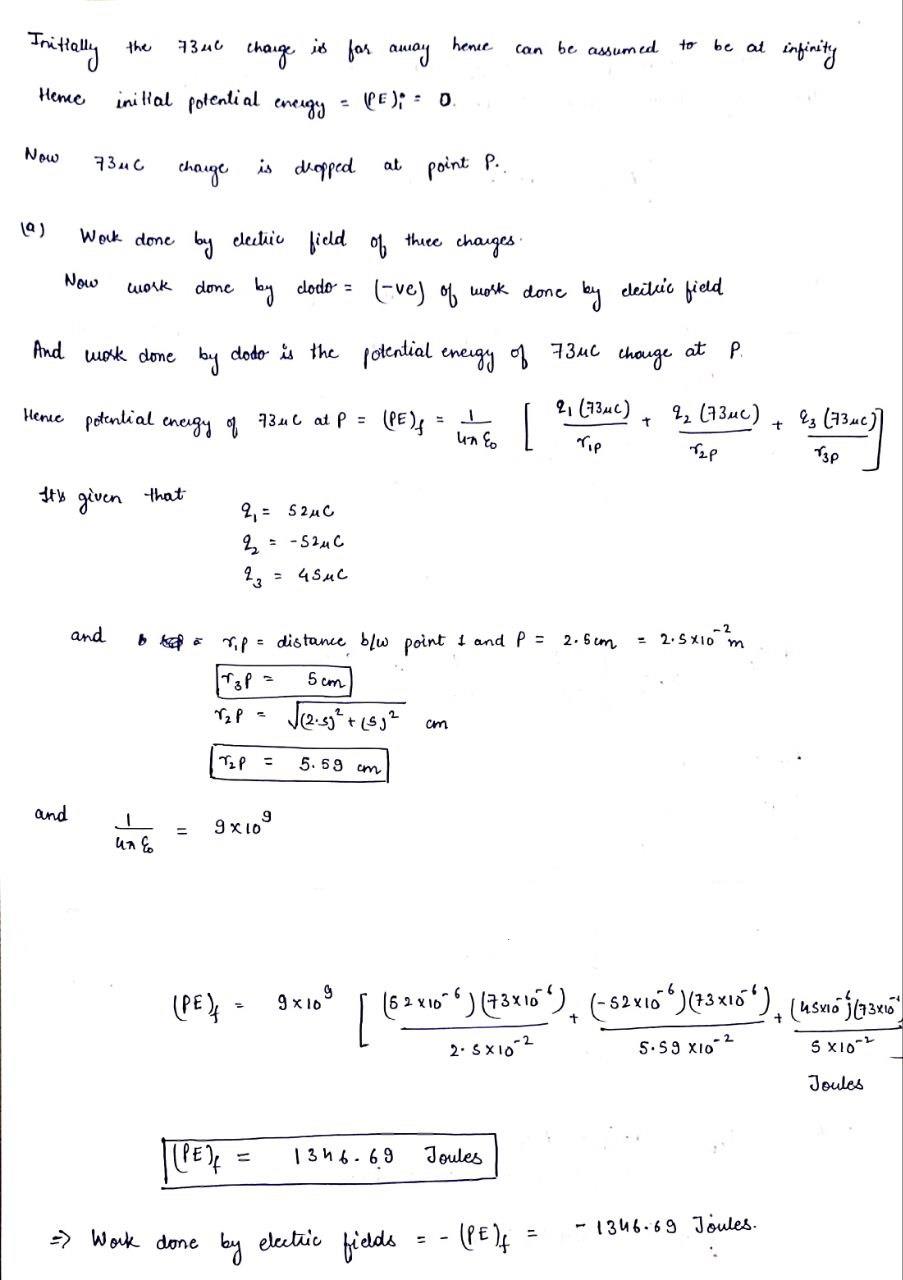 Initially the 73μC charge is far away hence can be assumed to be at infinity
Hence initial potential energy = (PE)i = 0.
Now 73μC charge is dropped at point P.
(a) Work done by electric field of three charges.
Now work done by dodo = (-ve) of work done by electric field
And work done by dodo is the potential energy of 73μC charge at P.
Hence potential energy of 73μC at P = (PE)f = 1/4πε₀ [ q₁(73μC)/r₁P + q₂(73μC)/r₂P + q₃(73μC)/r₃P ]
It's given that
q₁ = 52μC
q₂ = -52μC
q₃ = 45μC
and r₁P = distance b/w point 1 and P = 2.5cm = 2.5×10⁻² m
r₃P = 5 cm
r₂P = √((2.5)² + (5)²) cm
r₂P = 5.59 cm
and 1/4πε₀ = 9×10⁹
(PE)f = 9×10⁹ [ (52×10⁻⁶)(73×10⁻⁶)/2.5×10⁻² + (-52×10⁻⁶)(73×10⁻⁶)/5.59×10⁻² + (45×10⁻⁶)(73×10⁻⁶/5×10⁻²
Joules
(PE)f = 1346.69 Joules
⇒ Work done by electric fields = -(PE)f = -1346.69 Joules.